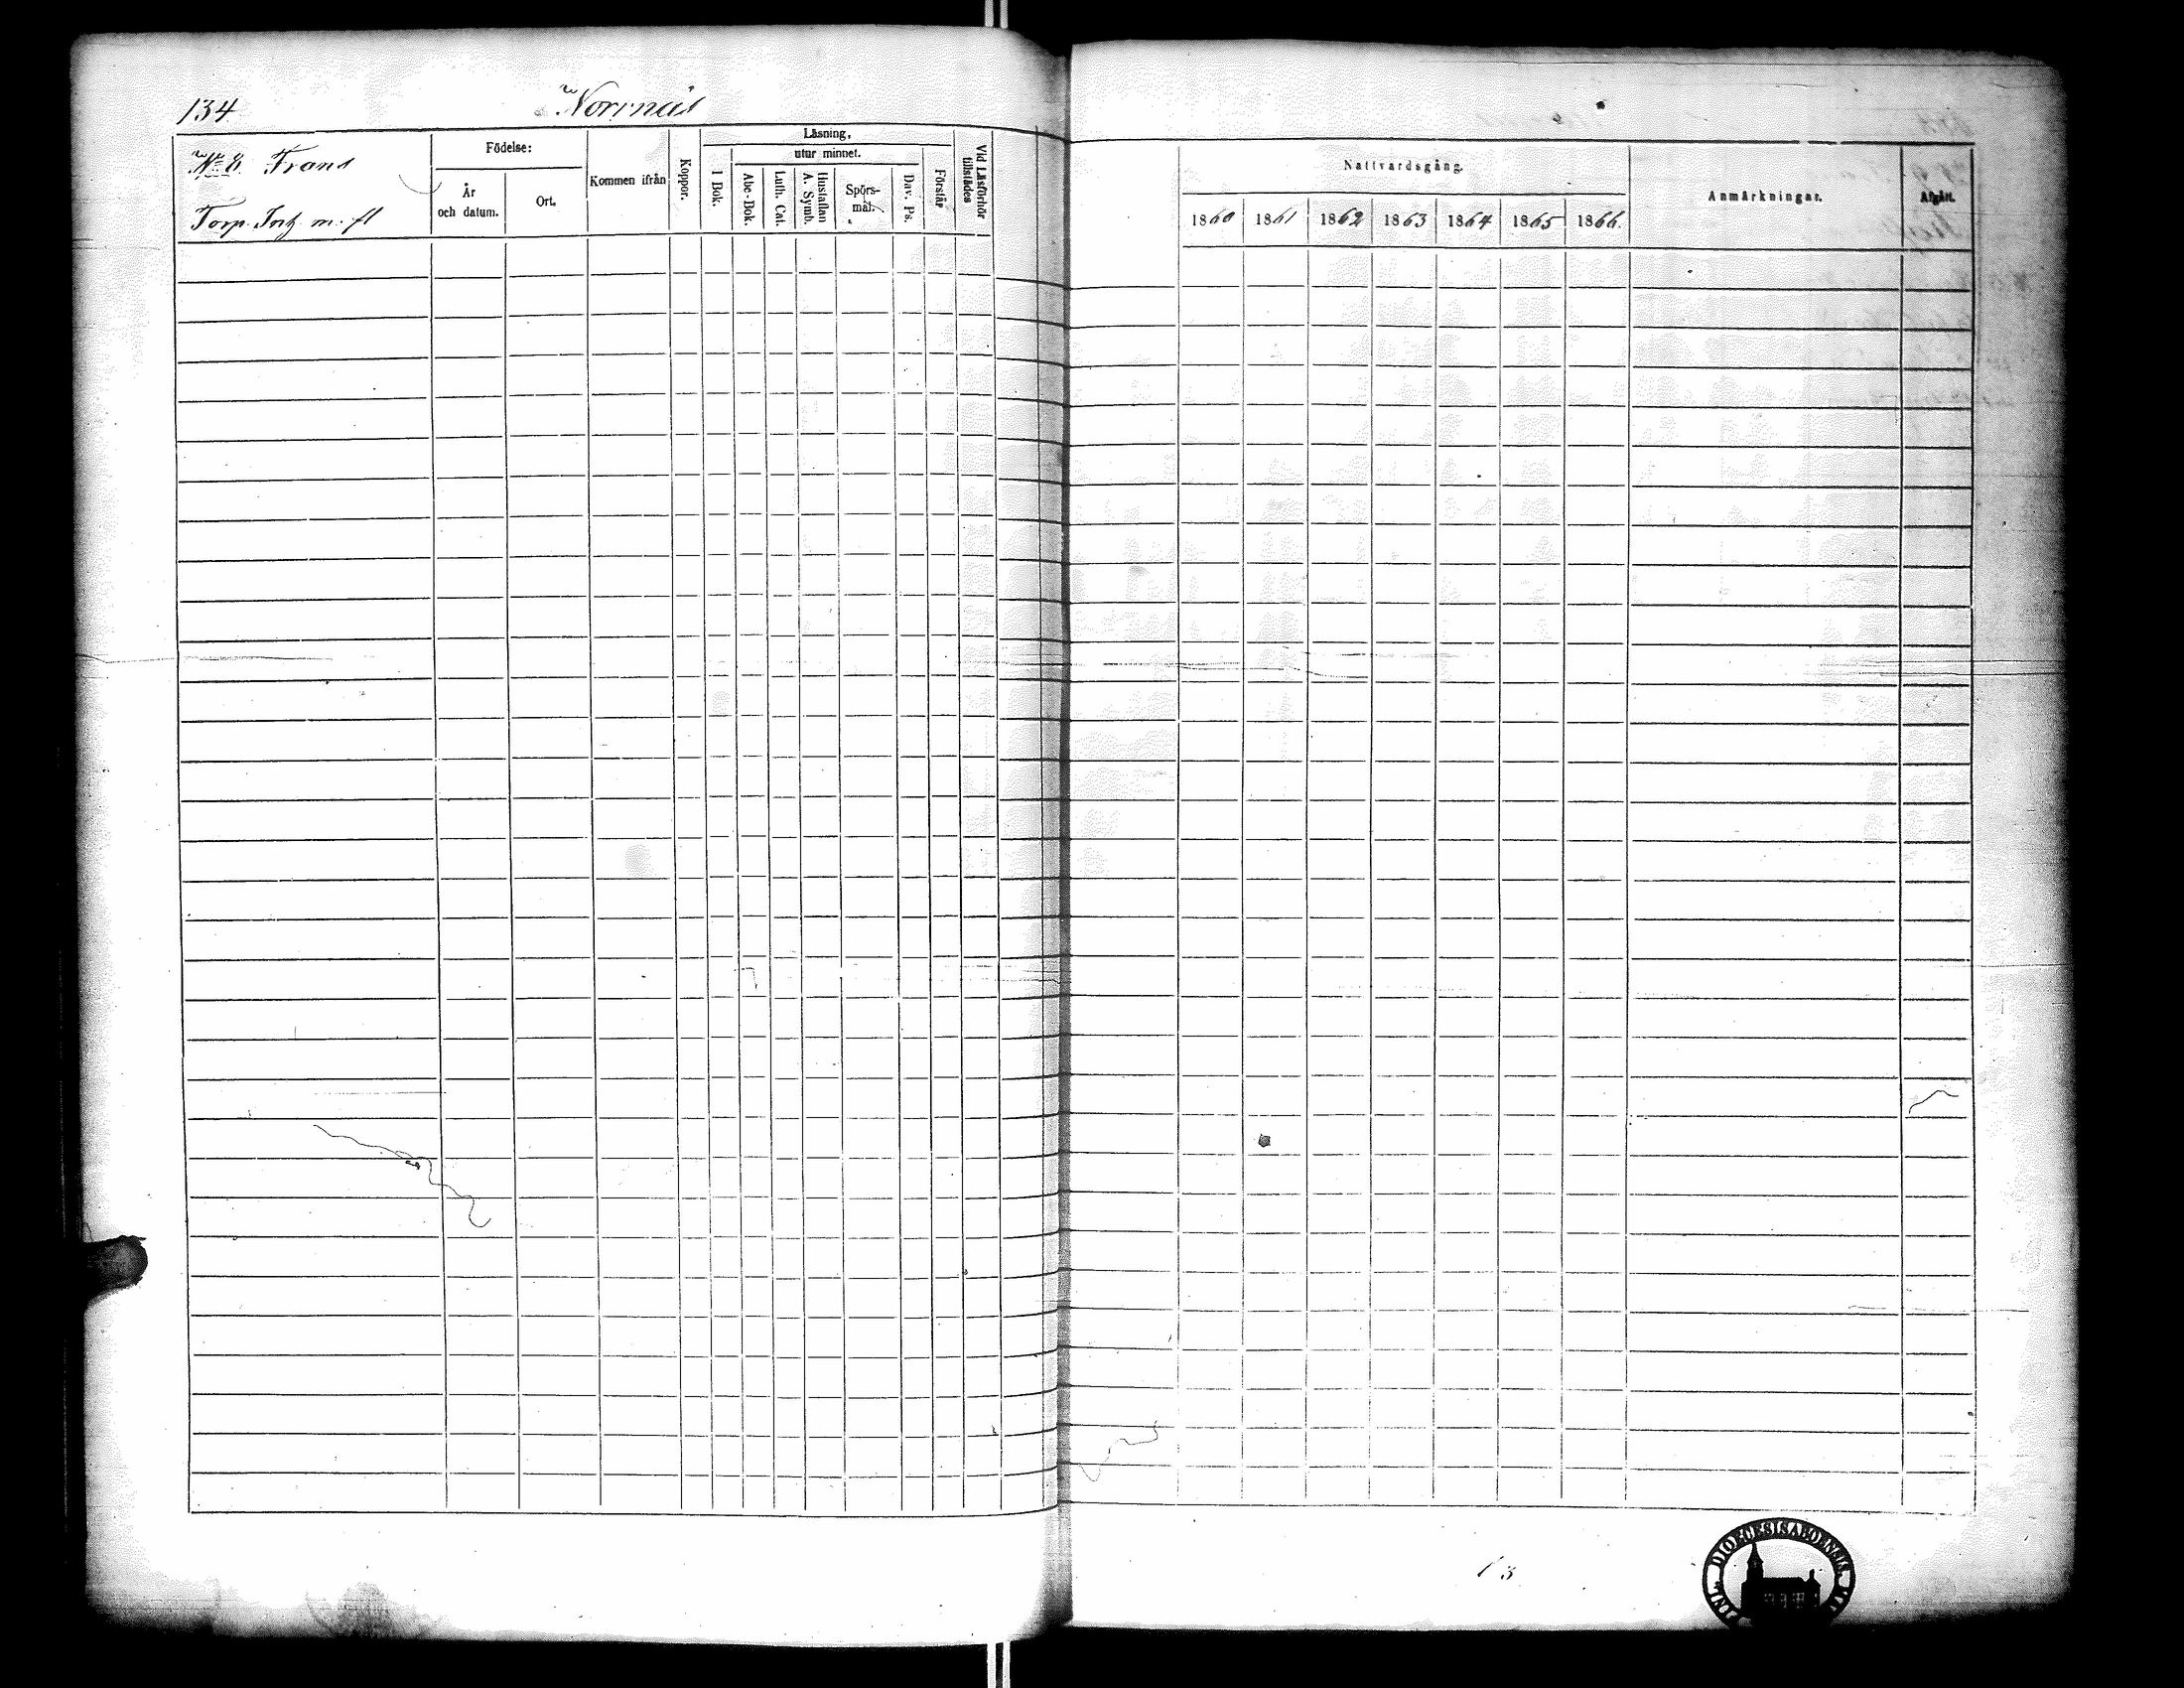 134
Norrnäs
Nº 8. Frans
Torp. Inh. m. fl
Födelse:
År
och datum.
Ort.
Kommen ifrån
Koppor.
Läsning,
utur minnet.
I Bok.
Abc-Bok.
Luth. Cat.
Hustaflan
A. Symb.
Spörs-
mål.
Dav. Ps.
Förstår
Vid Läsförhör
tillstädes
Nattvardsgång.
1860 1861 1862 1863 1864 1865 1866.
Anmärkningar.
Afgått.
13
DIOECESIS ABOENSIS